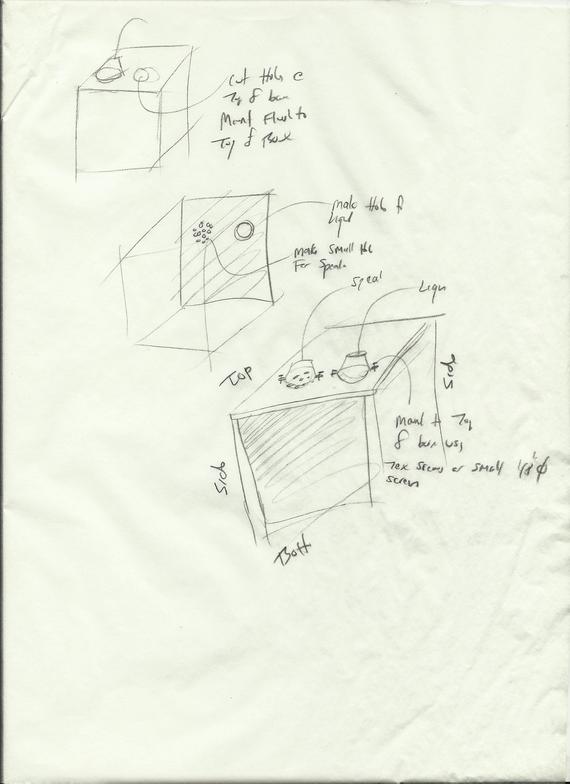 Cut Hole @
Top of box
Mount Flush to
Top of Box
Make Hole
Make Small Hol
For Speak
Speak
TOP
Side
Mount to Top
of box
Tex screws or small 1/8" Ø
screws
Side
Bott